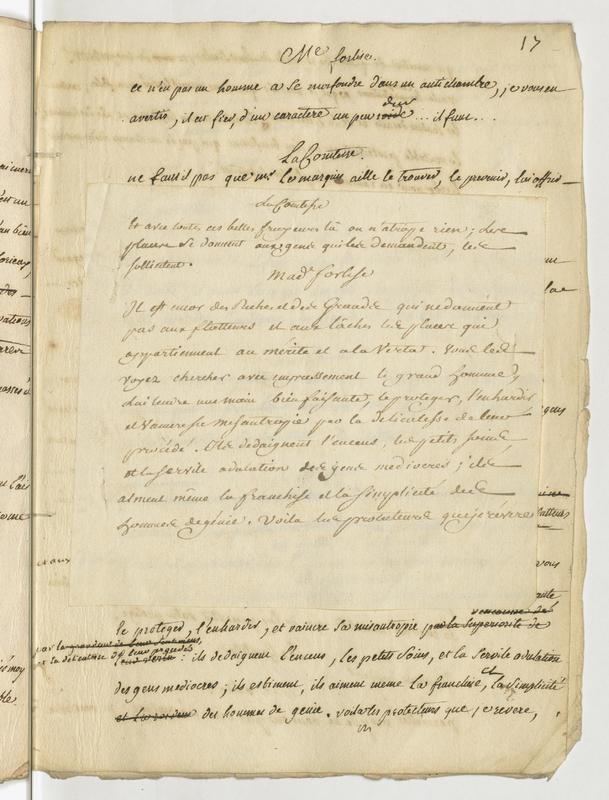 17
Me forlise.
ce n'en pas un homme a se morfondre dans un antichambre, je vous en
avertis, il est fier, d'un caractere un peu dur ... il faut...
La Comtesse.
ne faut il pas que mr le marquis aille le trouver, le prevenir, lui offrir
La Comtesse
Et avec toutes ces belles là on n'attrape rien ; les
places se donnent aux gens qui les demandent, les
sollicitent.
Made forlise
Il est encor des Riches et des Grands qui ne donnent
pas aux flatteurs et aux lâches les places qui
appartiennent au mérite et a la Vertu. Vous les
voyez chercher avec empressement le grand homme,
lui tendre une main bienfaisante, le proteger, l'enhardir
et vaincre sa misantropie par la délicatesse de leurs
procédé. Ils dedaignent l'encens, les petits soins
et la servile adulation des gens mediocres ; ils
aiment même la franchise et la simplicité des
hommes de génie. Voila les protecteurs que je révère
vous
le proteger, l'enhardir, et vaincre sa misautropie par la superiorite de
par la grandeur de leurs sentimens,
par la délicatesse de leurs procédés
: ils dedaignent l'encens, les petits soins, et la servile adulation
des gens mediocres ; ils estiment, ils aiment meme la franchise, et la simplicité
des hommes de genie. voila les protecteurs que je revere,